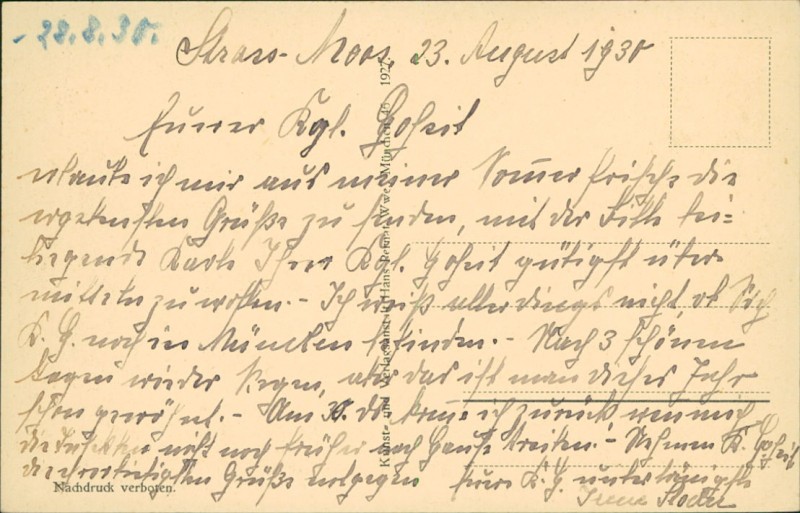 - 28.8.30.
Strass-Moos, 23. August 1930
Eurer Kgl. Hoheit
erlaube ich mir aus meiner Sommerfrische die
ergebensten Grüße zu senden, mit der Bitte bei=
liegende Karte Ihrer Kgl. Hoheit gütigst über
mitteln zu wollen. - Ich weiß allerdings nicht, ob Sich
K. H. noch in München befinden. - Nach 3 schönen
Tagen wieder Regen, aber das ist man dieses Jahr
schon gewöhnt. - Am 30. ds. komme ich zurück wenn mich
die Insekten nicht noch früher nach Hause treiben. - Nehmen K. Hoheit
die Grüße entgegen Eure K. H. untertänigste
Irene
Nachdruck verboten.
Kunst- und Verlagsanstalt Hans Pernat, Wwe., München 46 1927.